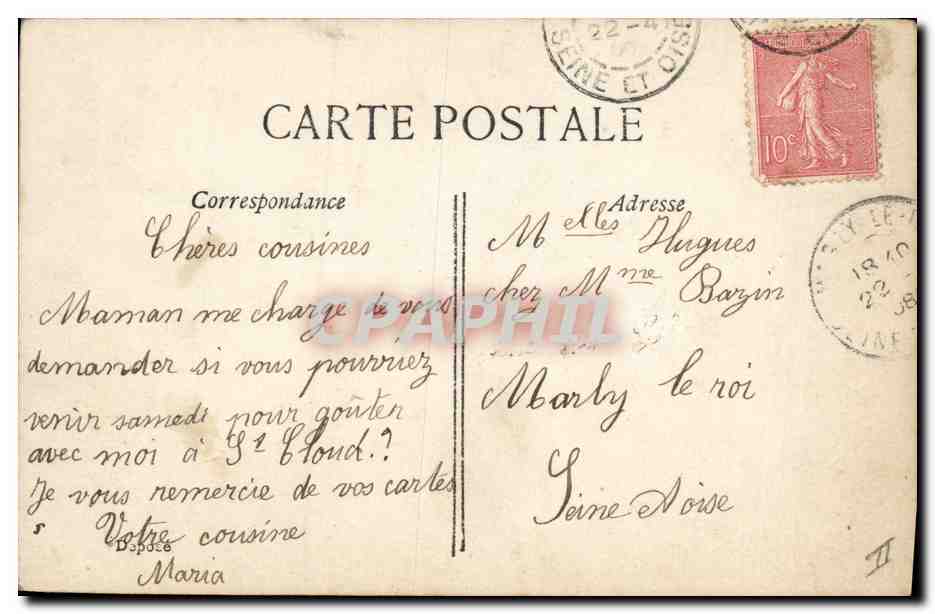 22-4
SEINE ET OISE
CARTE POSTALE
10c
Correspondance
Adresse
Chères cousines
Maman me charge de vous
demander si vous pourriez
venir samedi pour goûter
avec moi à St Cloud.?
Je vous remercie de vos cartes
Votre cousine
Maria
Déposé
Melles Hugues
chez Mme Bazin
Marly le roi
Seine Aoise
LY-LE-
18 40
22
08
EINE
CPAPHIL
II